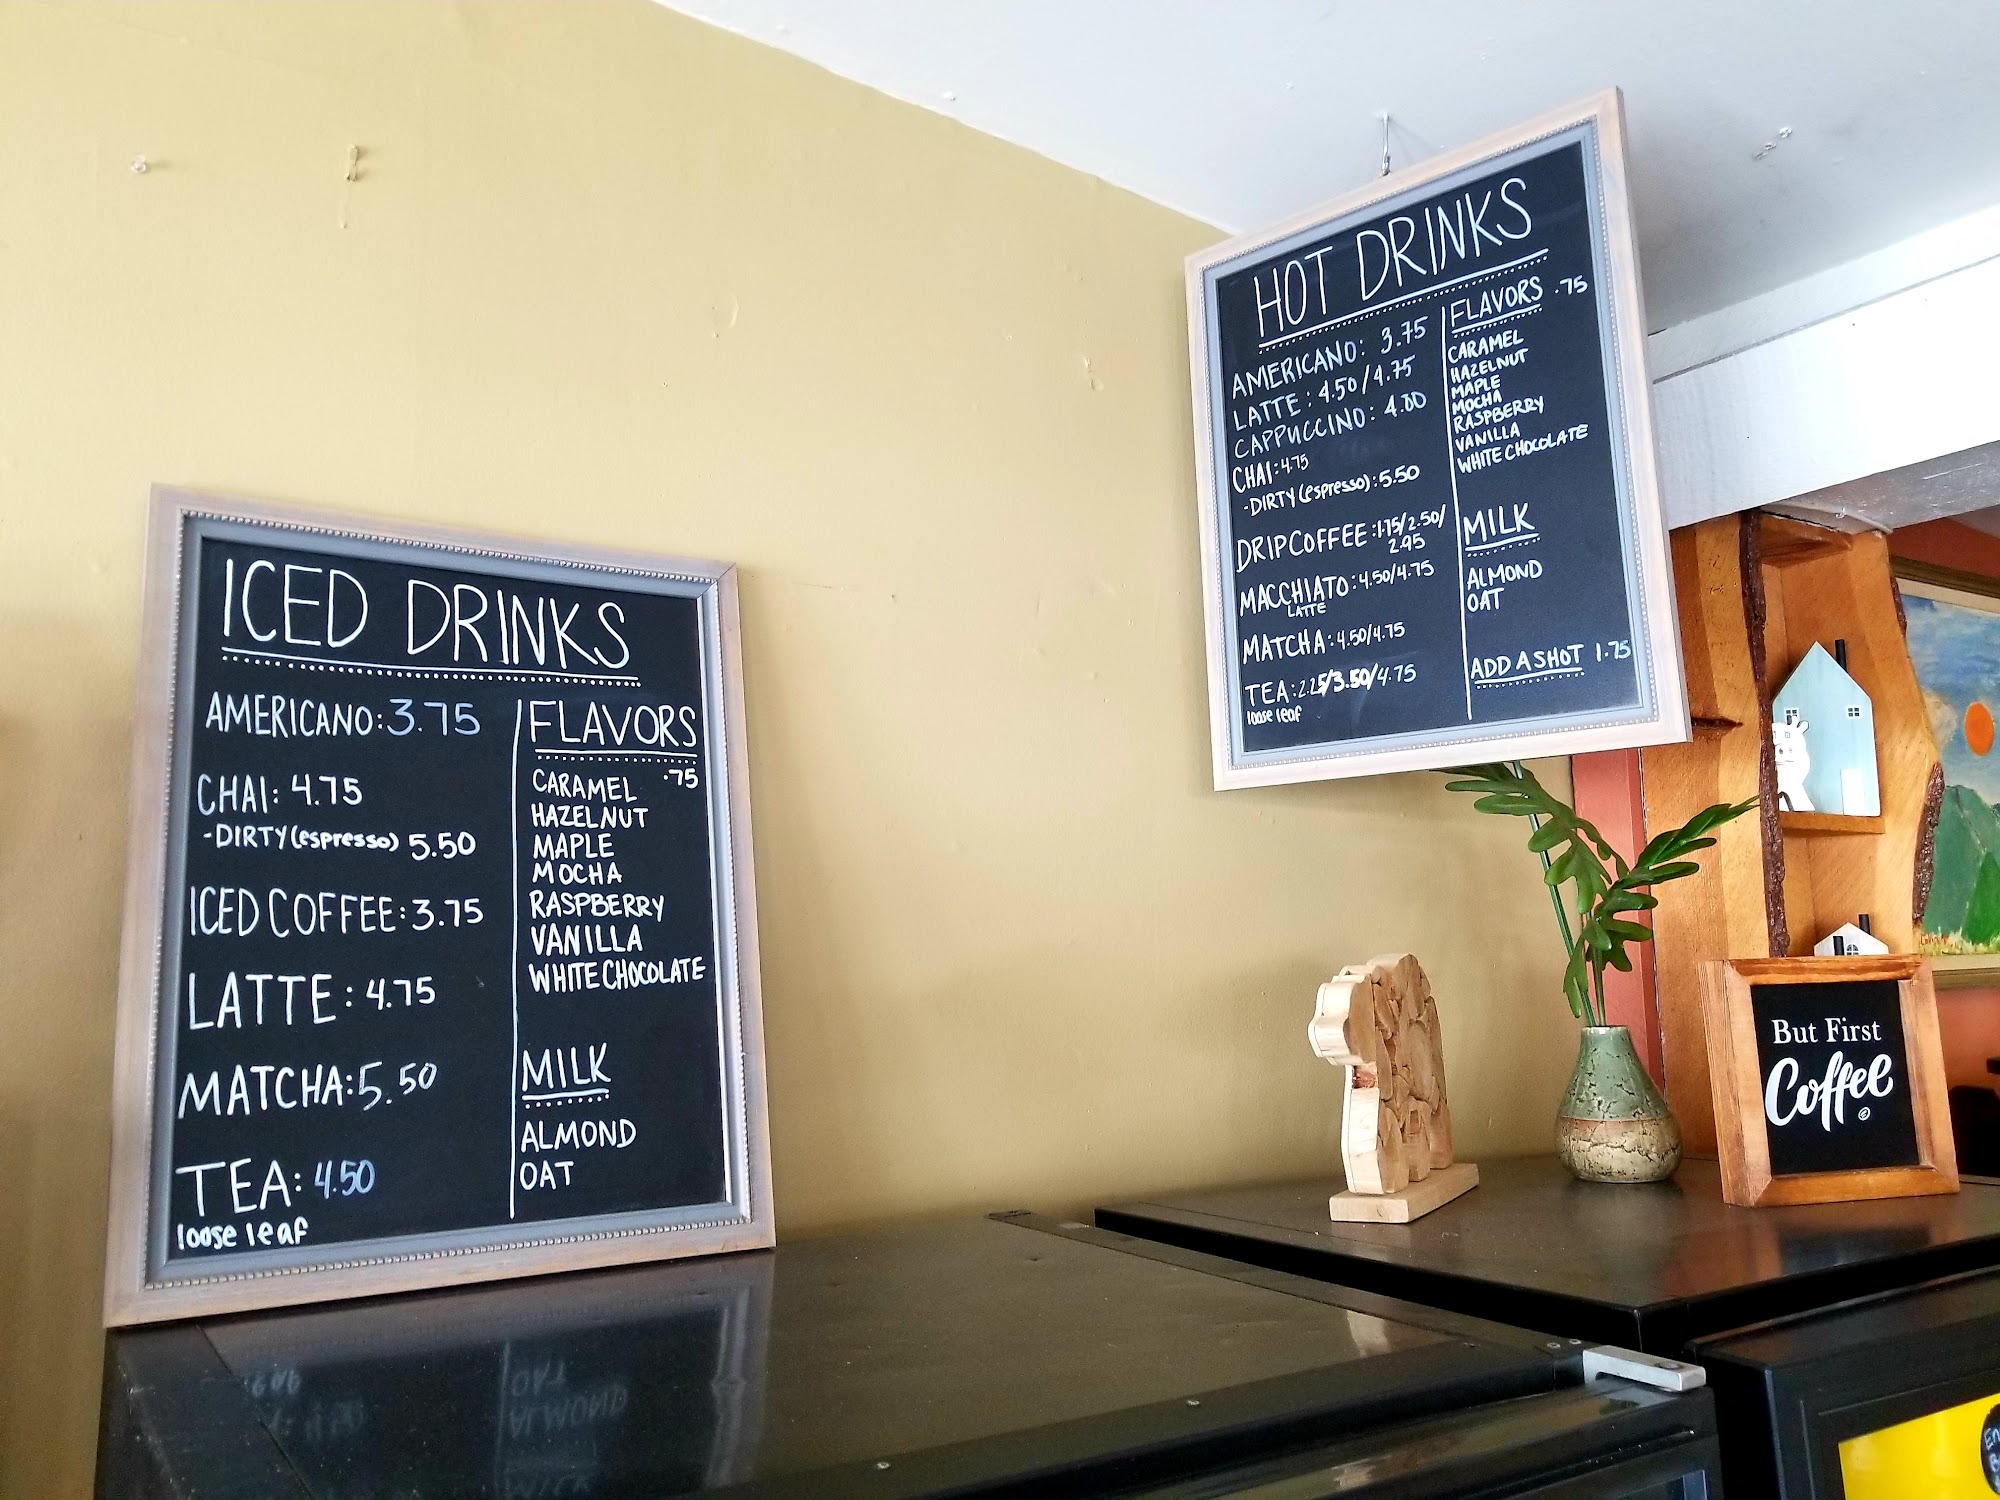 ICED DRINKS
AMERICANO: 3.75
CHAI: 4.75
-DIRTY (espresso) 5.50
ICED COFFEE: 3.75
LATTE: 4.75
MATCHA: 5.50
TEA: 4.50
loose leaf
FLAVORS
.75
CARAMEL
HAZELNUT
MAPLE
MOCHA
RASPBERRY
VANILLA
WHITE CHOCOLATE
MILK
ALMOND
OAT
HOT DRINKS
AMERICANO: 3.75
LATTE: 4.50/4.75
CAPPUCCINO: 4.00
CHAI: 4.75
-DIRTY (espresso): 5.50
DRIP COFFEE: 1.75/2.50/
2.95
MACCHIATO: 4.50/4.75
LATTE
MATCHA: 4.50/4.75
TEA: 2.25/3.50/4.75
loose leaf
FLAVORS .75
CARAMEL
HAZELNUT
MAPLE
MOCHA
RASPBERRY
VANILLA
WHITE CHOCOLATE
MILK
ALMOND
OAT
ADD A SHOT 1.75
But First
Coffee